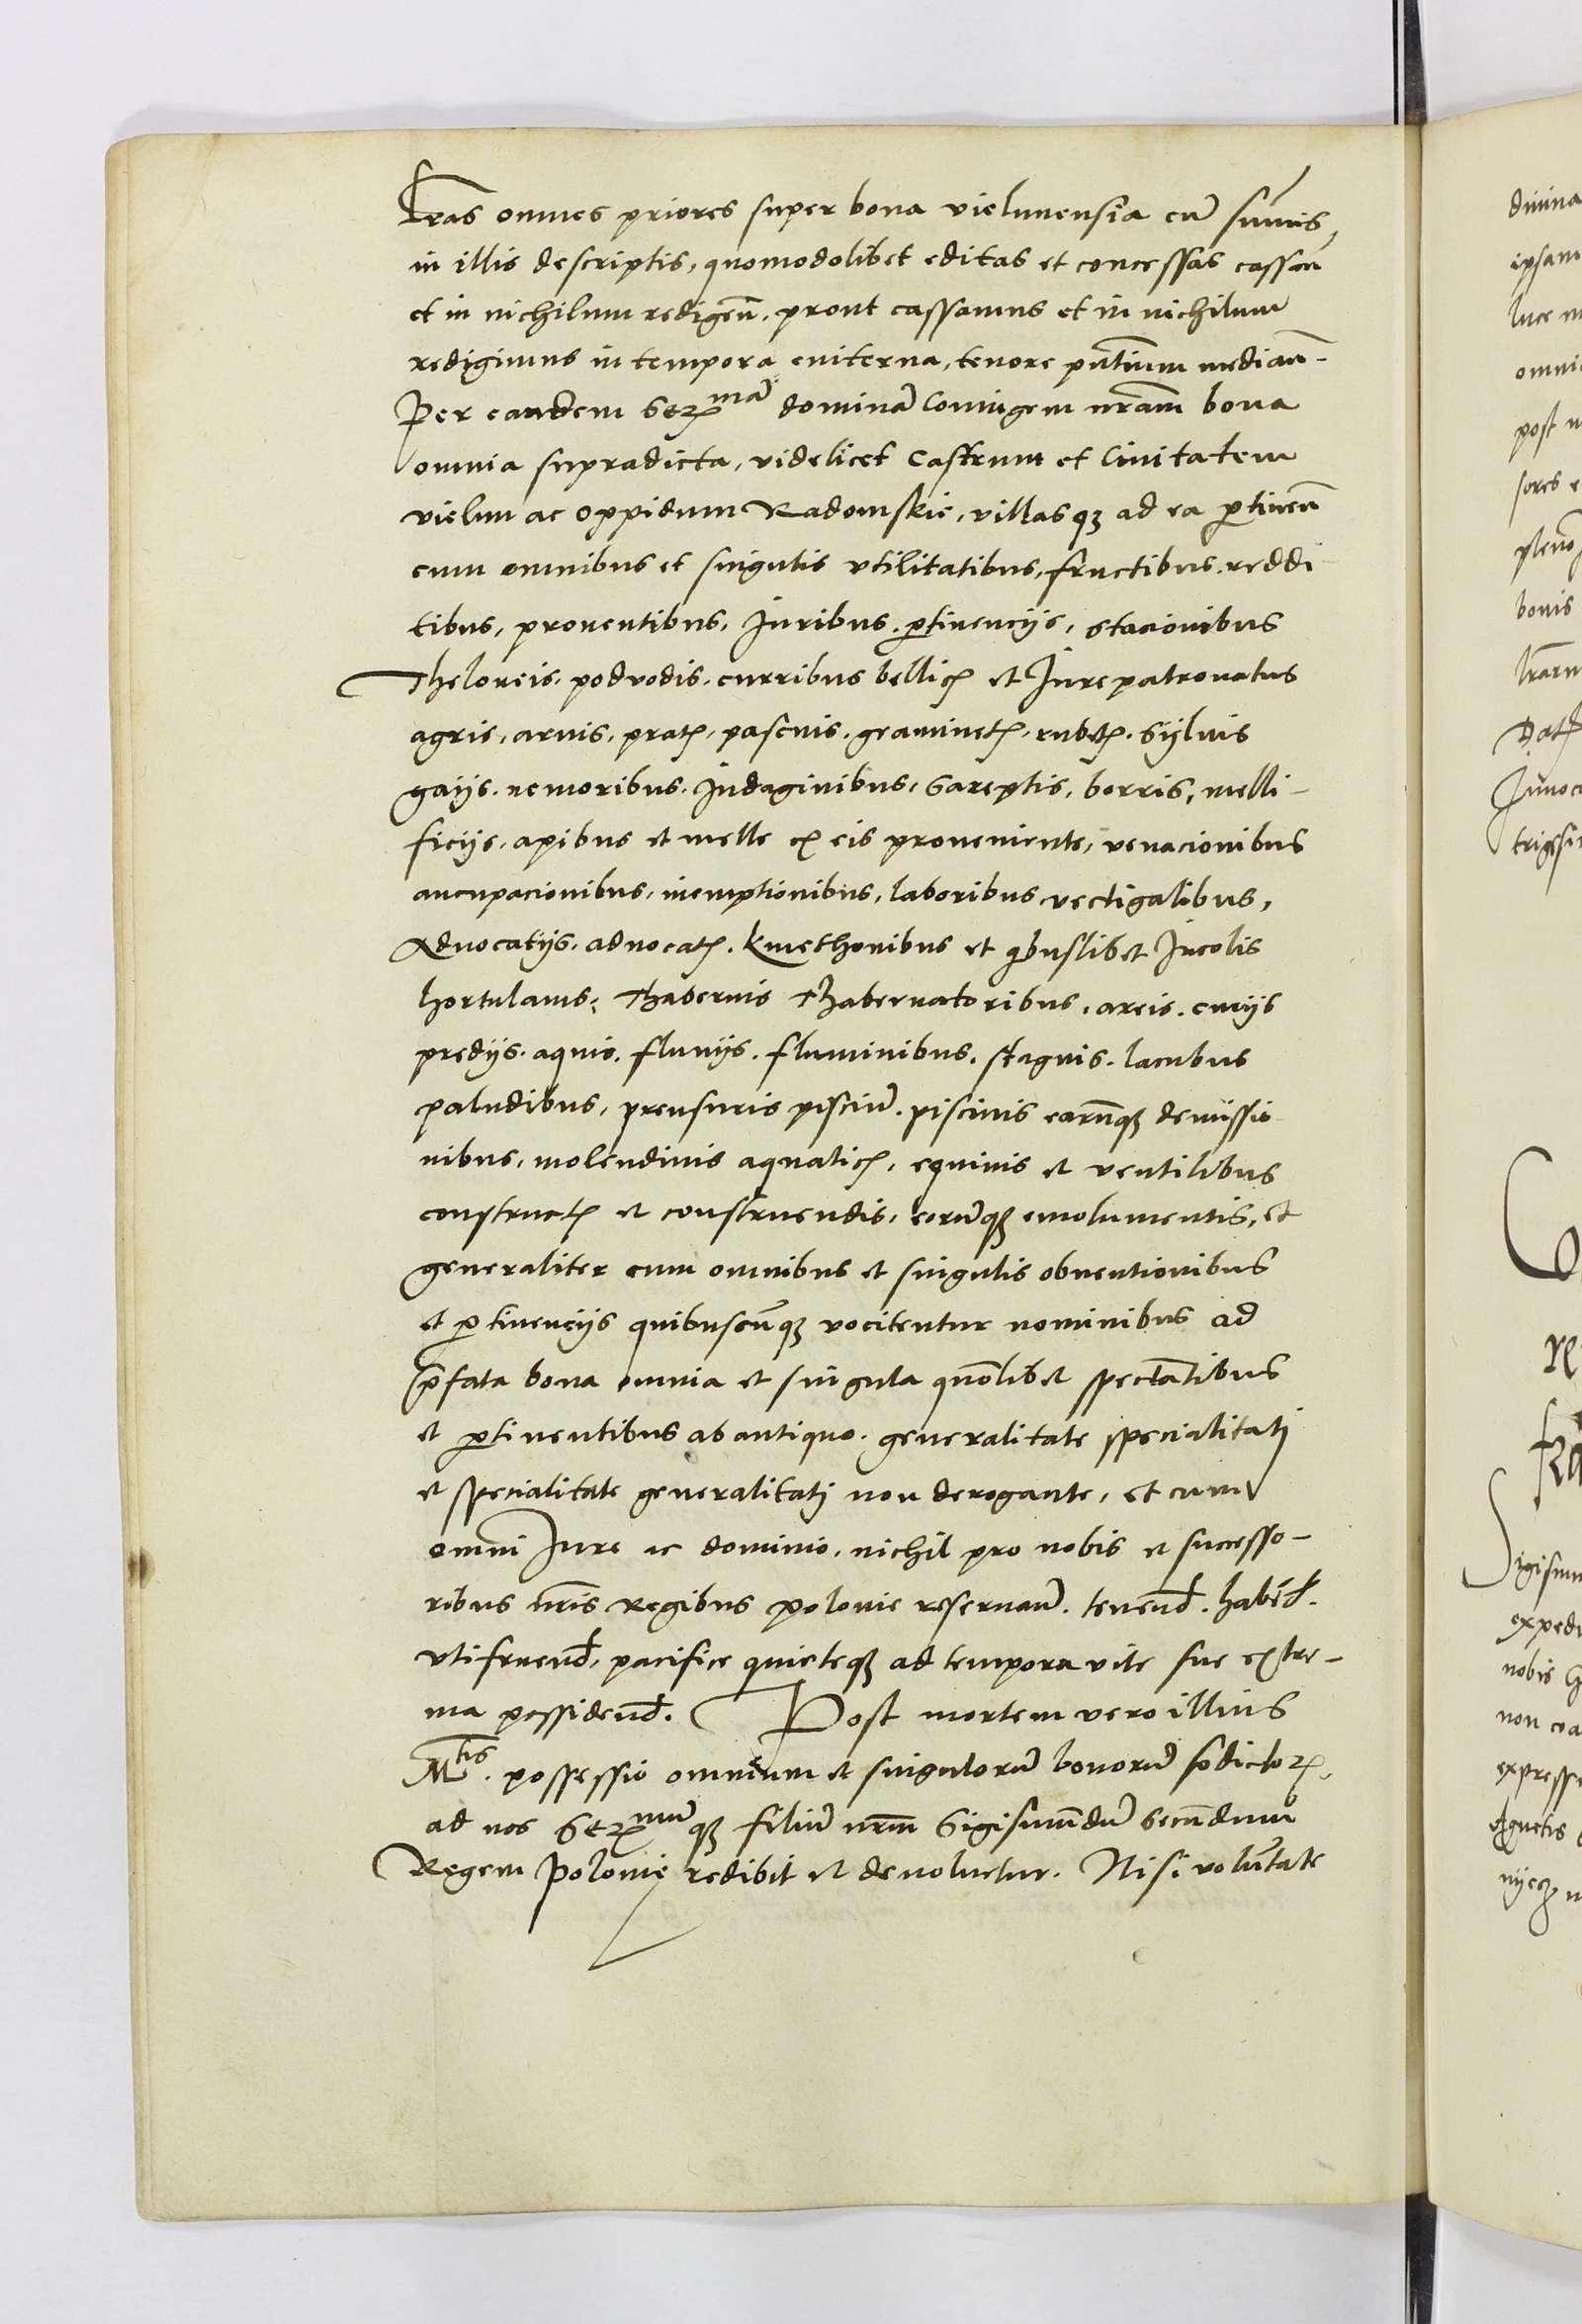 Lras omnes priores super bona vielunensia cu͂ su͂mis,
in illis descriptis, quomodolibet editas et concessas cassan͂
et in nichilum redigen͂. prout cassamus et in nichilum
redigimus in tempora eviterna, tenore pn͂tium median͂.-
Per eandem Serꝫ^mã dominã Coniugem nr͂am bona
omnia supradicta, videlicet Castrum et Civitatem
vielun ac oppidum Radomskie, villasqꝫ ad ea ꝑtinen͂
cum omnibus et singulis vtilitatibus, fructibus. reddi
tibus, proventibus, Juribus. ꝑtinencijs, stacionibus
Theloneis. podvodis. curribus bellicꝭ et Jure patronatus
agris, arvis, pratꝭ, pascuis. graminetꝭ, rubetꝭ. Syluis
gaijs. nemoribus. Indaginibus, Gareptis, borris, melli-
ficijs, apibus et melle eꝭ eis proveniente, venacionibus
aucupacionibus, inemptionibus, laboribus vectigalibus,
Advocatijs. advocatꝭ. kmethonibus et qͥbuslibet Incolis
hortulanis, Thabernis Thabernatoribus, areis. curijs
predijs. aquis. fluvijs. fluminibus. stagnis. lacubus
paludibus, prensuris pisciu͂. piscinis earu͂qꝫ demissio
nibus, molendinis aquaticꝭ, equinis et ventilibus
constructꝭ et construendis, eoru͂qꝫ emolumentis, et
generaliter cum omnibus et singulis obventionibus
et ꝑtinencijs quibuscu͂qꝫ vocitentur nominibus ad
p͂fata bona omnia et singula quo͂libet specta͂tibus
et ꝑtinentibus ab antiquo. generalitate specialitatj
et specialitate generalitatj non derogante, et cum
omni Jure ac dominio. nichil pro nobis et successo-
ribus nr͂is Regibus polonie reservan͂. tenend͂. habe͂d.
vtifruend͂, pacifice quieteqꝫ ad tempora vite sue eꝭtre-
ma possidend͂. Post mortem vero illius
M^tis. possessio omnium et singuloru͂ bonoru͂ p͂dictorꝫ,
ad nos Serꝫ^mu͂ qꝫ filiu͂ nr͂m Sigismu͂du͂ Secu͂dum
Regem polonię redibit et devoluetur. Nisi volu͂tate
divina
ipsam
luce m
omni
post m
sores e
pleno
bonis
lr͂aru
Datꝭ
Jnnoc
trigesi
re
fra
Sigismu
expedi
nobis G
non coa
express
Agnetis